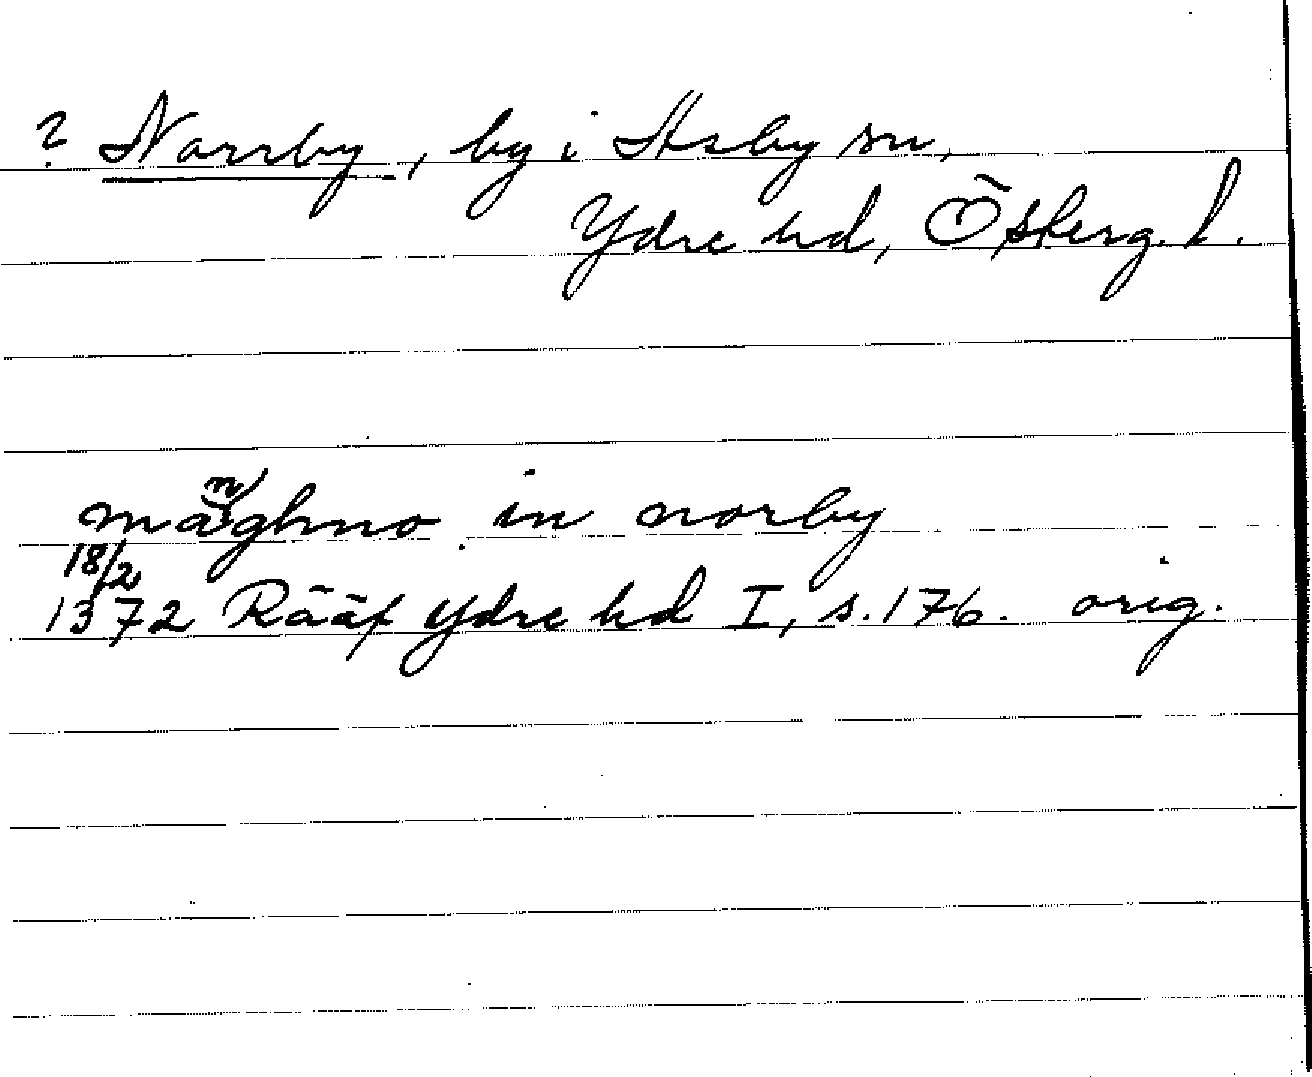 ? Norrby, by i Asby sn,
Ydre hd, Österg. l.
manghno in norby
18/2
1372 Rääf Ydre hd I, s. 176. orig.